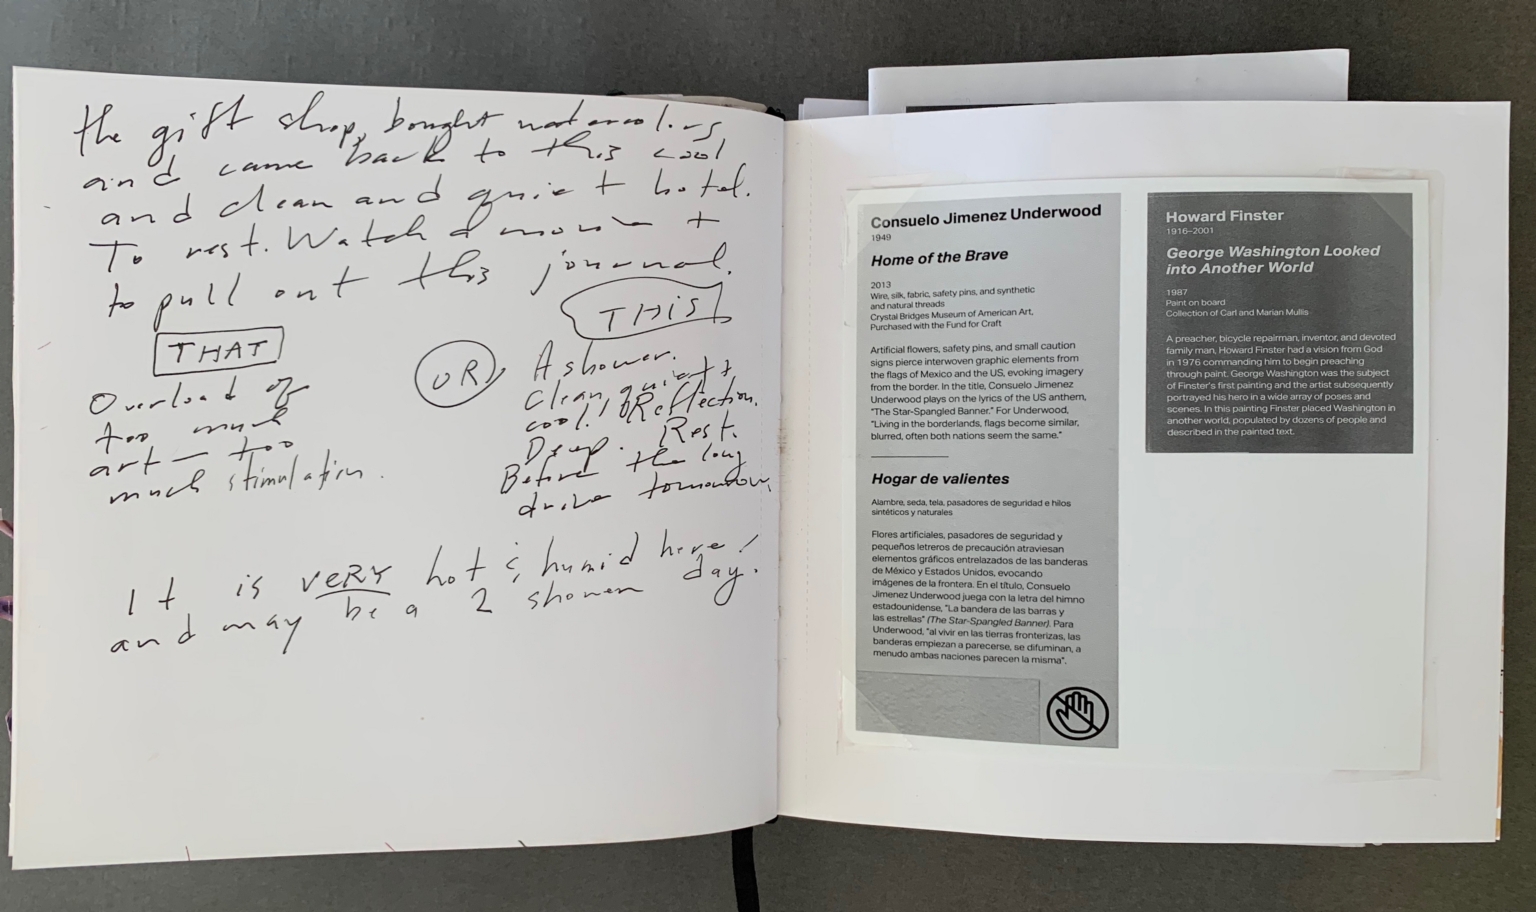 the gift shop, bought watercolors
and came back to this cool
and clean and quiet hotel.
To rest. Watch a movie +
to pull out this journal.
THAT
Overload of
too much
art — too
much stimulation.
OR
THIS
A shower.
Clean, quiet +
cool! Reflection.
Deep. Rest.
Before the long
drive tomorrow.
It is VERY hot & humid here!
and may be a 2 shower day.
Consuelo Jimenez Underwood
1949
Home of the Brave
2013
Wire, silk, fabric, safety pins, and synthetic
and natural threads
Crystal Bridges Museum of American Art,
Purchased with the Fund for Craft
Artificial flowers, safety pins, and small caution
signs pierce interwoven graphic elements from
the flags of Mexico and the US, evoking imagery
from the border. In the title, Consuelo Jimenez
Underwood plays on the lyrics of the US anthem,
"The Star-Spangled Banner." For Underwood,
"Living in the borderlands, flags become similar,
blurred, often both nations seem the same."
Hogar de valientes
Alambre, seda, tela, pasadores de seguridad e hilos
sintéticos y naturales
Flores artificiales, pasadores de seguridad y
pequeños letreros de precaución atraviesan
elementos gráficos entrelazados de las banderas
de México y Estados Unidos, evocando
imágenes de la frontera. En el título, Consuelo
Jimenez Underwood juega con la letra del himno
estadounidense, "La bandera de las barras y
las estrellas" (The Star-Spangled Banner). Para
Underwood, "al vivir en las tierras fronterizas, las
banderas empiezan a parecerse, se difuminan, a
menudo ambas naciones parecen la misma".
Howard Finster
1916–2001
George Washington Looked
into Another World
1987
Paint on board
Collection of Carl and Marian Mullis
A preacher, bicycle repairman, inventor, and devoted
family man, Howard Finster had a vision from God
in 1976 commanding him to begin preaching
through paint. George Washington was the subject
of Finster's first painting and the artist subsequently
portrayed his hero in a wide array of poses and
scenes. In this painting Finster placed Washington in
another world, populated by dozens of people and
described in the painted text.